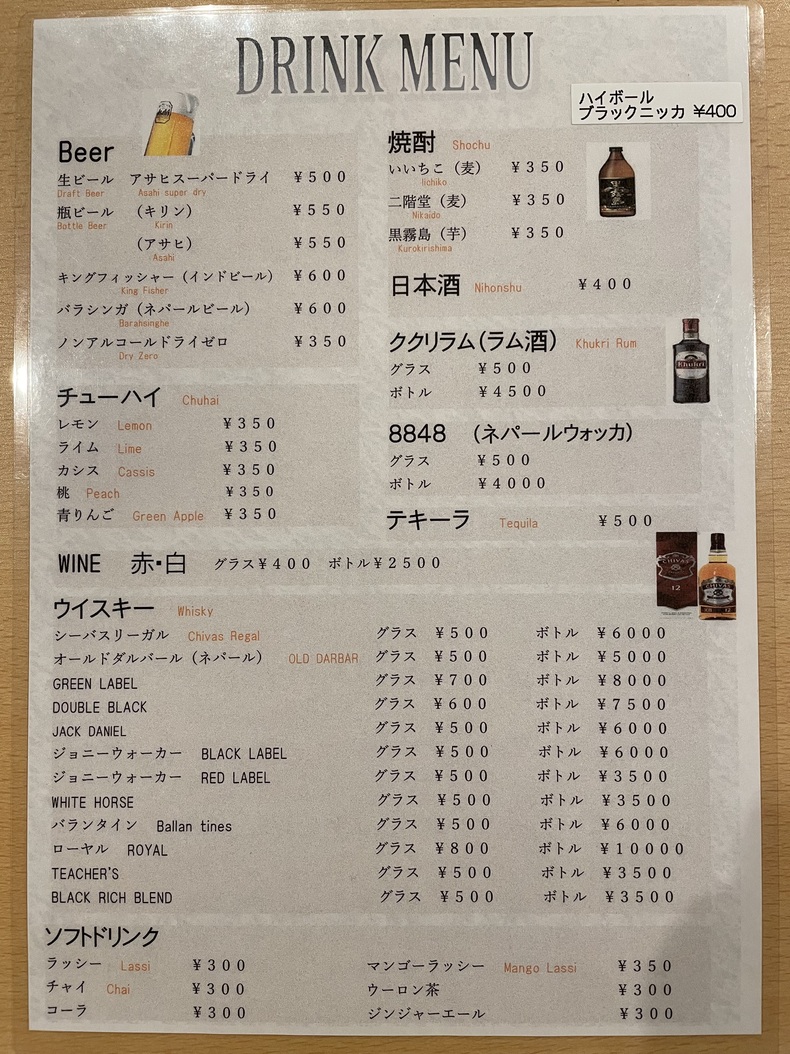 DRINK MENU
ハイボール
ブラックニッカ ¥400
Beer
生ビール アサヒスーパードライ ¥500
Draft Beer Asahi super dry
瓶ビール (キリン) ¥550
Bottle Beer Kirin
(アサヒ) ¥550
Asahi
キングフィッシャー(インドビール) ¥600
King Fisher
バラシンガ(ネパールビール) ¥600
Barahsinghe
ノンアルコールドライゼロ ¥350
Dry Zero
チューハイ Chuhai
レモン Lemon ¥350
ライム Lime ¥350
カシス Cassis ¥350
桃 Peach ¥350
青りんご Green Apple ¥350
焼酎 Shochu
いいちこ(麦) ¥350
Iichiko
二階堂(麦) ¥350
Nikaido
黒霧島(芋) ¥350
Kurokirishima
日本酒 Nihonshu ¥400
ククリラム(ラム酒) Khukri Rum
グラス ¥500
ボトル ¥4500
Khukri
8848 (ネパールウォッカ)
グラス ¥500
ボトル ¥4000
テキーラ Tequila ¥500
WINE 赤・白 グラス¥400 ボトル¥2500
CHIVAS
12
CHIVAS
ウイスキー Whisky
シーバスリーガル Chivas Regal グラス ¥500 ボトル ¥6000
オールドダルバール(ネパール) OLD DARBAR グラス ¥500 ボトル ¥5000
GREEN LABEL グラス ¥700 ボトル ¥8000
DOUBLE BLACK グラス ¥600 ボトル ¥7500
JACK DANIEL グラス ¥500 ボトル ¥6000
ジョニーウォーカー BLACK LABEL グラス ¥500 ボトル ¥6000
ジョニーウォーカー RED LABEL グラス ¥500 ボトル ¥3500
WHITE HORSE グラス ¥500 ボトル ¥3500
バランタイン Ballan tines グラス ¥500 ボトル ¥6000
ローヤル ROYAL グラス ¥800 ボトル ¥10000
TEACHER'S グラス ¥500 ボトル ¥3500
BLACK RICH BLEND グラス ¥500 ボトル ¥3500
ソフトドリンク
ラッシー Lassi ¥300
チャイ Chai ¥300
コーラ ¥300
マンゴーラッシー Mango Lassi ¥350
ウーロン茶 ¥300
ジンジャーエール ¥300